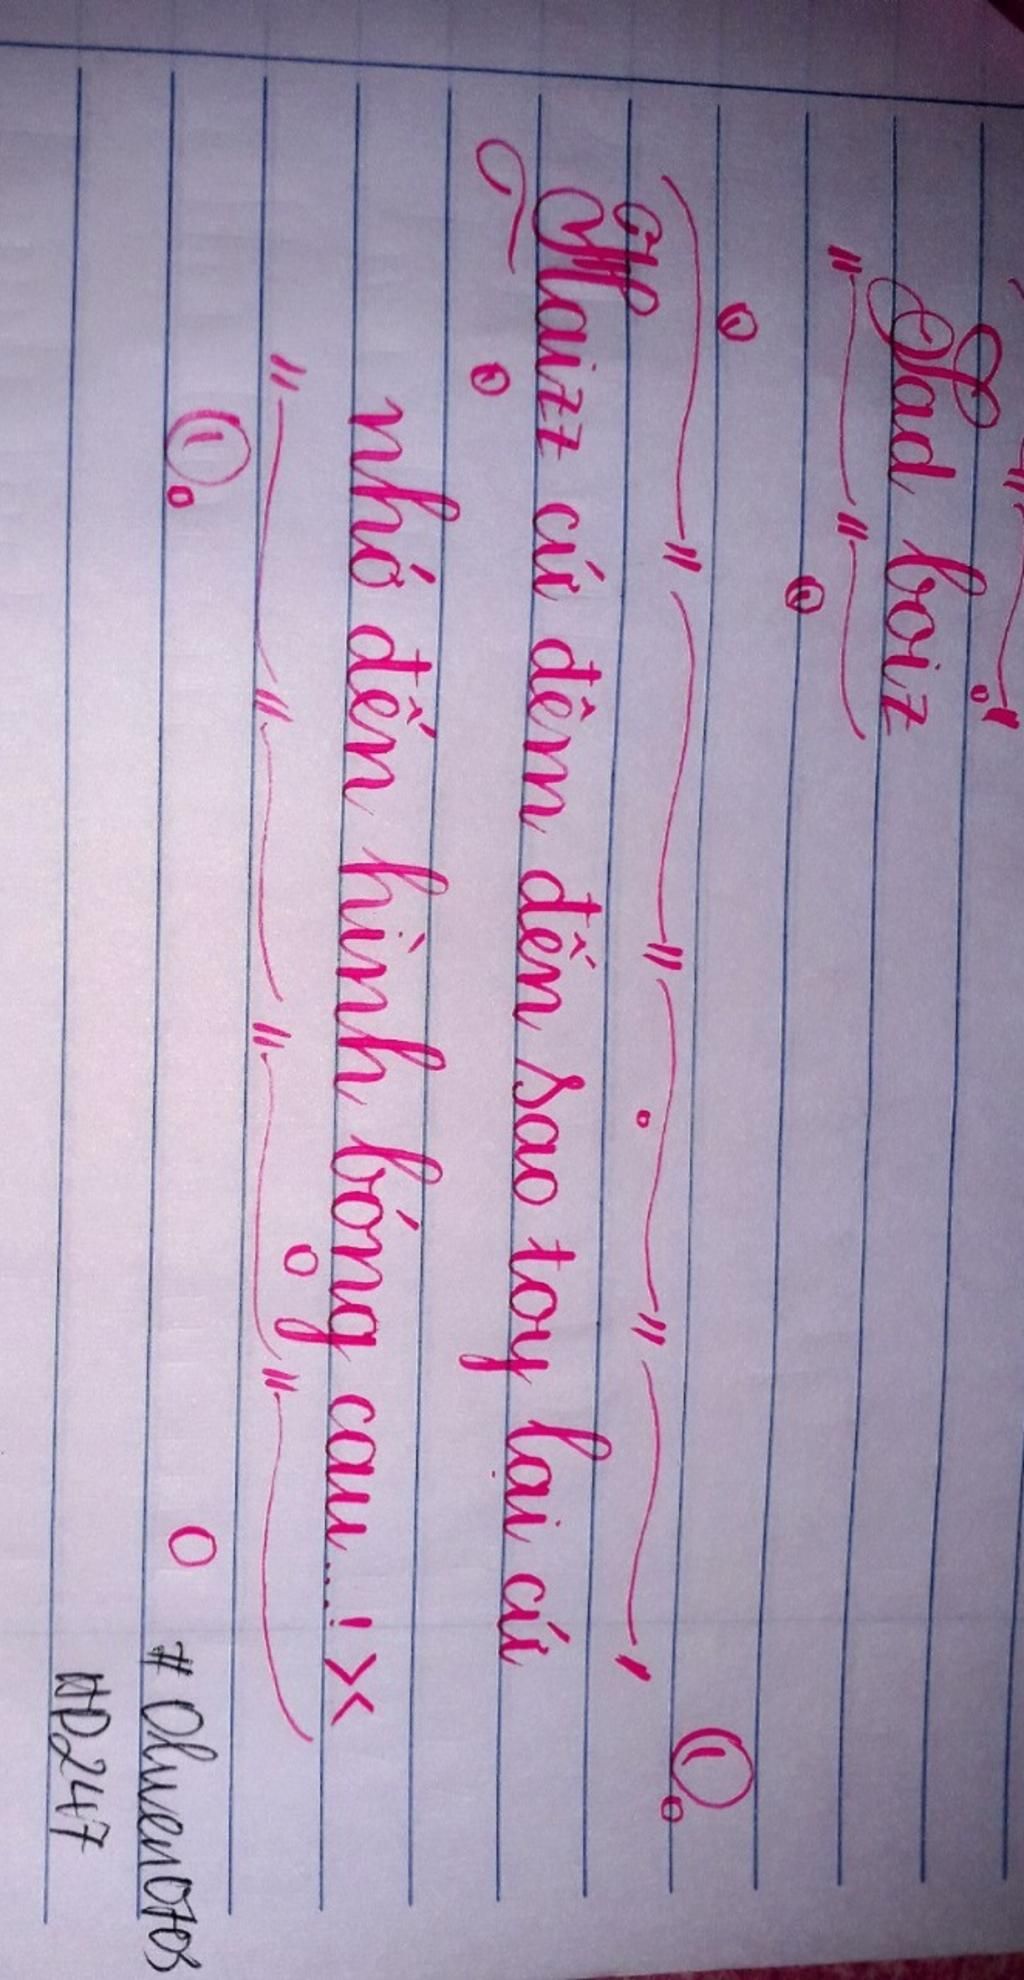 Sad boiz
Haizz cứ đêm đến sao toy lại cứ
nhớ đến hình bóng cau...! ><
# Oliver0708
HP247